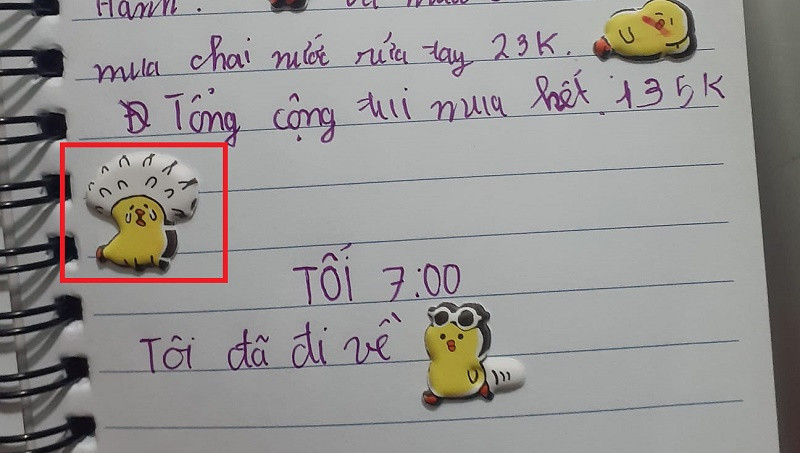 Hành.
mua chai nước rửa tay 23K.
Tổng cộng tui mua hết 135K
TỐI 7:00
Tôi đã đi về